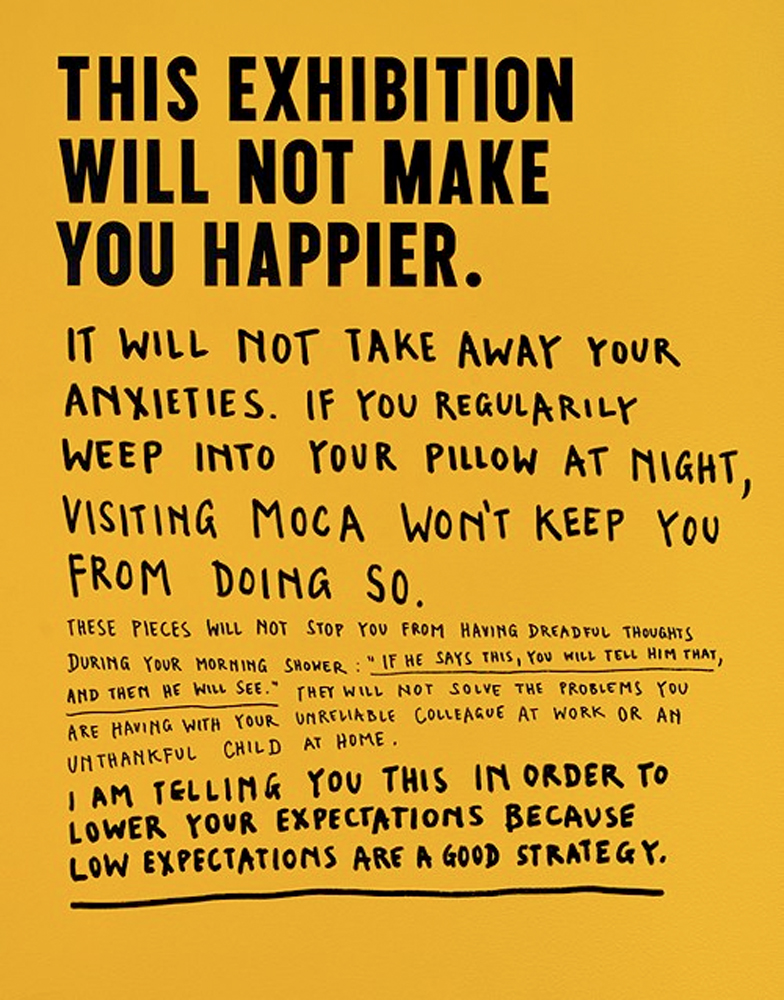 THIS EXHIBITION
WILL NOT MAKE
YOU HAPPIER.
IT WILL NOT TAKE AWAY YOUR
ANXIETIES. IF YOU REGULARILY
WEEP INTO YOUR PILLOW AT NIGHT,
VISITING MOCA WON'T KEEP YOU
FROM DOING SO.
THESE PIECES WILL NOT STOP YOU FROM HAVING DREADFUL THOUGHTS
DURING YOUR MORNING SHOWER: "IF HE SAYS THIS, YOU WILL TELL HIM THAT,
AND THEN HE WILL SEE." THEY WILL NOT SOLVE THE PROBLEMS YOU
ARE HAVING WITH YOUR UNRELIABLE COLLEAGUE AT WORK OR AN
UNTHANKFUL CHILD AT HOME.
I AM TELLING YOU THIS IN ORDER TO
LOWER YOUR EXPECTATIONS BECAUSE
LOW EXPECTATIONS ARE A GOOD STRATEGY.